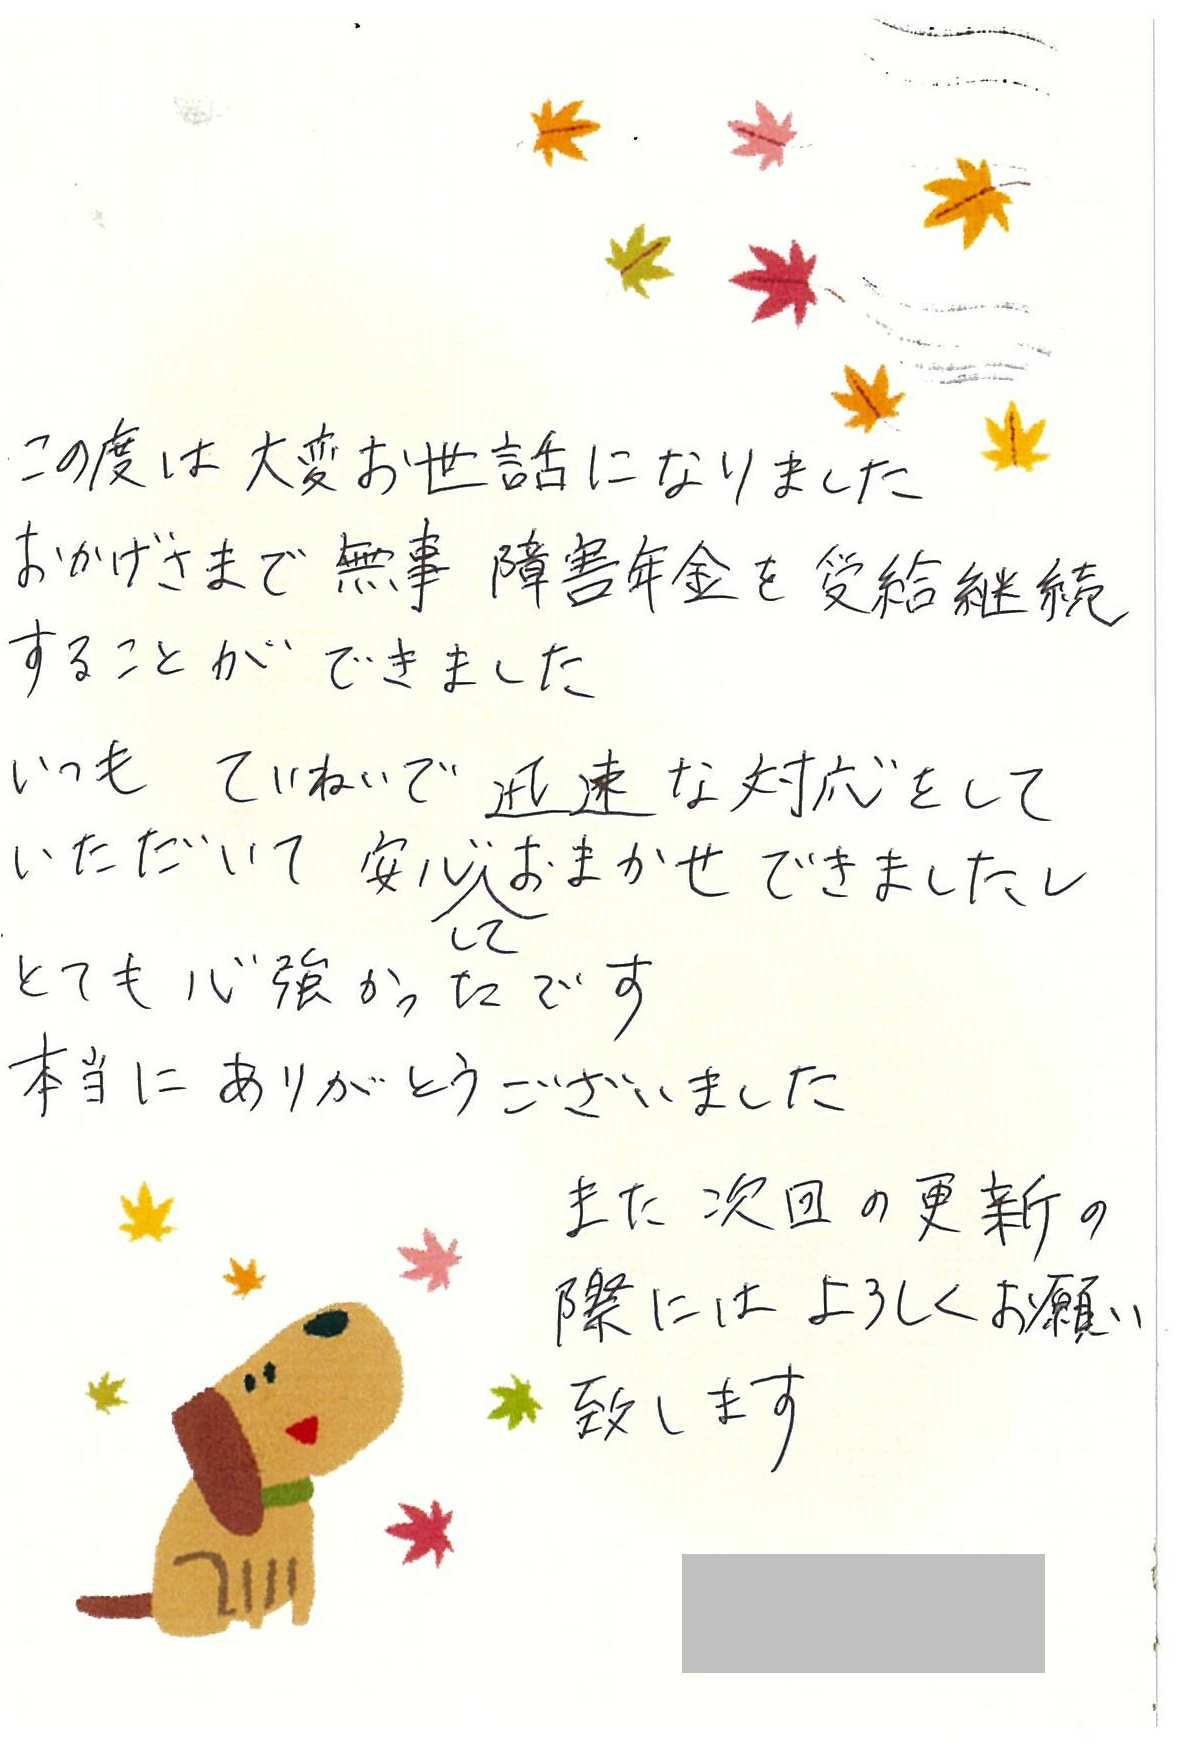 この度は大変お世話になりました
おかげさまで無事 障害年金を受給継続
することができました
いつも ていねいで迅速な対応をして
いただいて 安心しておまかせできましたし
とても心強かったです
本当にありがとうございました
また次回の更新の
際にはよろしくお願い
致します